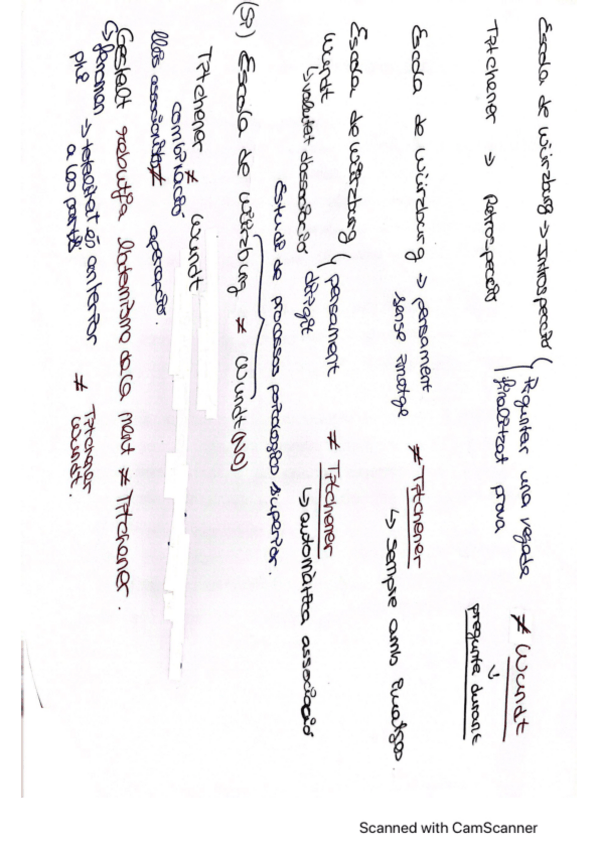 Escola de Würzburg → Introspecció
Preguntar una vegada
finalitzat prova
≠ Wundt
↳ pregunta durant
Titchener → Retrospecció
Escola de Würzburg → pensament
sense imatge
≠ Titchener
↳ Sempre amb imatges
Escola de Würzburg
Wundt
pensament
dirigit
↳ voluntat d'associació
≠ Titchener
↳ automàtica associació
Estudi de processos psicologics superior.
(SI) Escola de Würzburg ≠ Wundt (NO)
Titchener ≠ Wundt
combinació
lleis associonistes ≠ apercepció.
Gestalt rebutja l'atomisme de la ment ≠ Titchener.
↳ fenomen → totalitat és anterior
phi
a les parts
≠ Titchener
Wundt.
Scanned with CamScanner